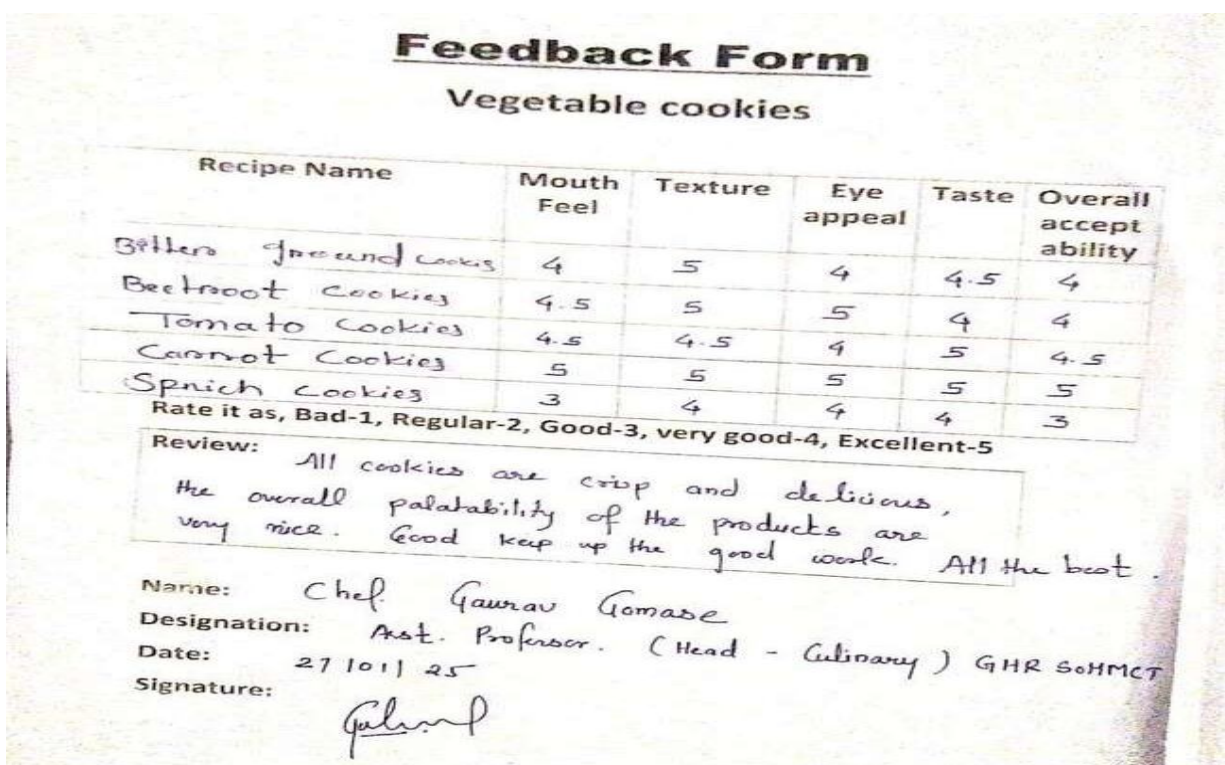 Feedback Form
Vegetable cookies
Recipe Name Mouth Feel Texture Eye appeal Taste Overall accept ability
Bitters ground cookis 4 5 4 4.5 4
Beetroot Cookies 4.5 5 5 4 4
Tomato Cookies 4.5 4.5 4 5 4.5
Carrot Cookies 5 5 5 5 5
Spnich Cookies 3 4 4 4 3
Rate it as, Bad-1, Regular-2, Good-3, very good-4, Excellent-5
Review: All cookies are crisp and delicious,
the overall palatability of the products are
very nice. Good keep up the good work. All the best.
Name: Chef. Gaurav Gomase
Designation: Asst. Professor. (Head - Culinary) GHR SOHMCT
Date: 27/01/25
Signature: